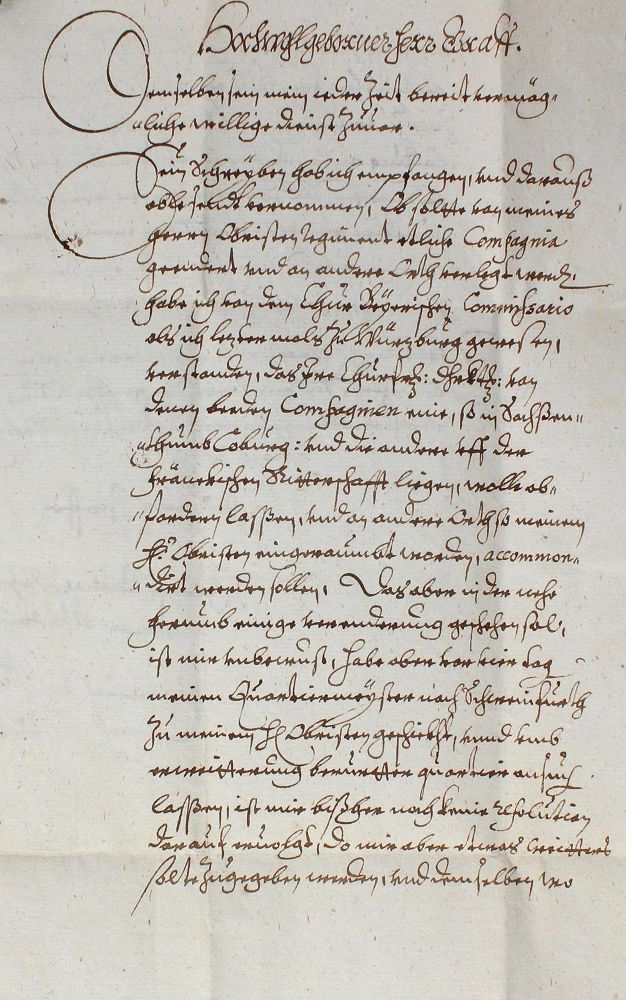 Hochwohlgeborner Herr Graff.
Demselben sein mein ieder Zeit bereit vermög-
liche willige dienst Zuuor.
Sein Schreyben hab ich empfangen, vnd darauß
ablesendt vernommen, Ob soltte von meines
Herrn Obristen regiment etliche Compagnia
geendert vnd an andere Orth verlegt werdn.
habe ich von dem Chur Beyerischen Commissario
als ich leztermals Zu Würzburg gewesen,
verstanden, das Ihre Churfr: Dhrltt: von
denen beeden Compagnien eine, so in Sachßen
Coburg: vnd die andere vff der
Fränckischen Ritterschafft liegen, wolle ab-
fordern laßßen, vnd an andere Orth so meinem
H: Obristen eingeraumbt worden, accommon-
dirt werden sollen, Das aber in der nehe
herumb einige verenderung geschehen sol,
ist mir vnbewust, habe aber vor vier tag
meinen Quartiermeyster nach Schweinfurth
Zu meinem H: Obristen geschickht, vnnd vmb
erweitterung berürtter quartier ansuchen
laßßen, ist mir bißher noch keine resolution
darauf ervolgt, do mir aber etwas weitters
solte Zugegeben werden, vnd demselben wo